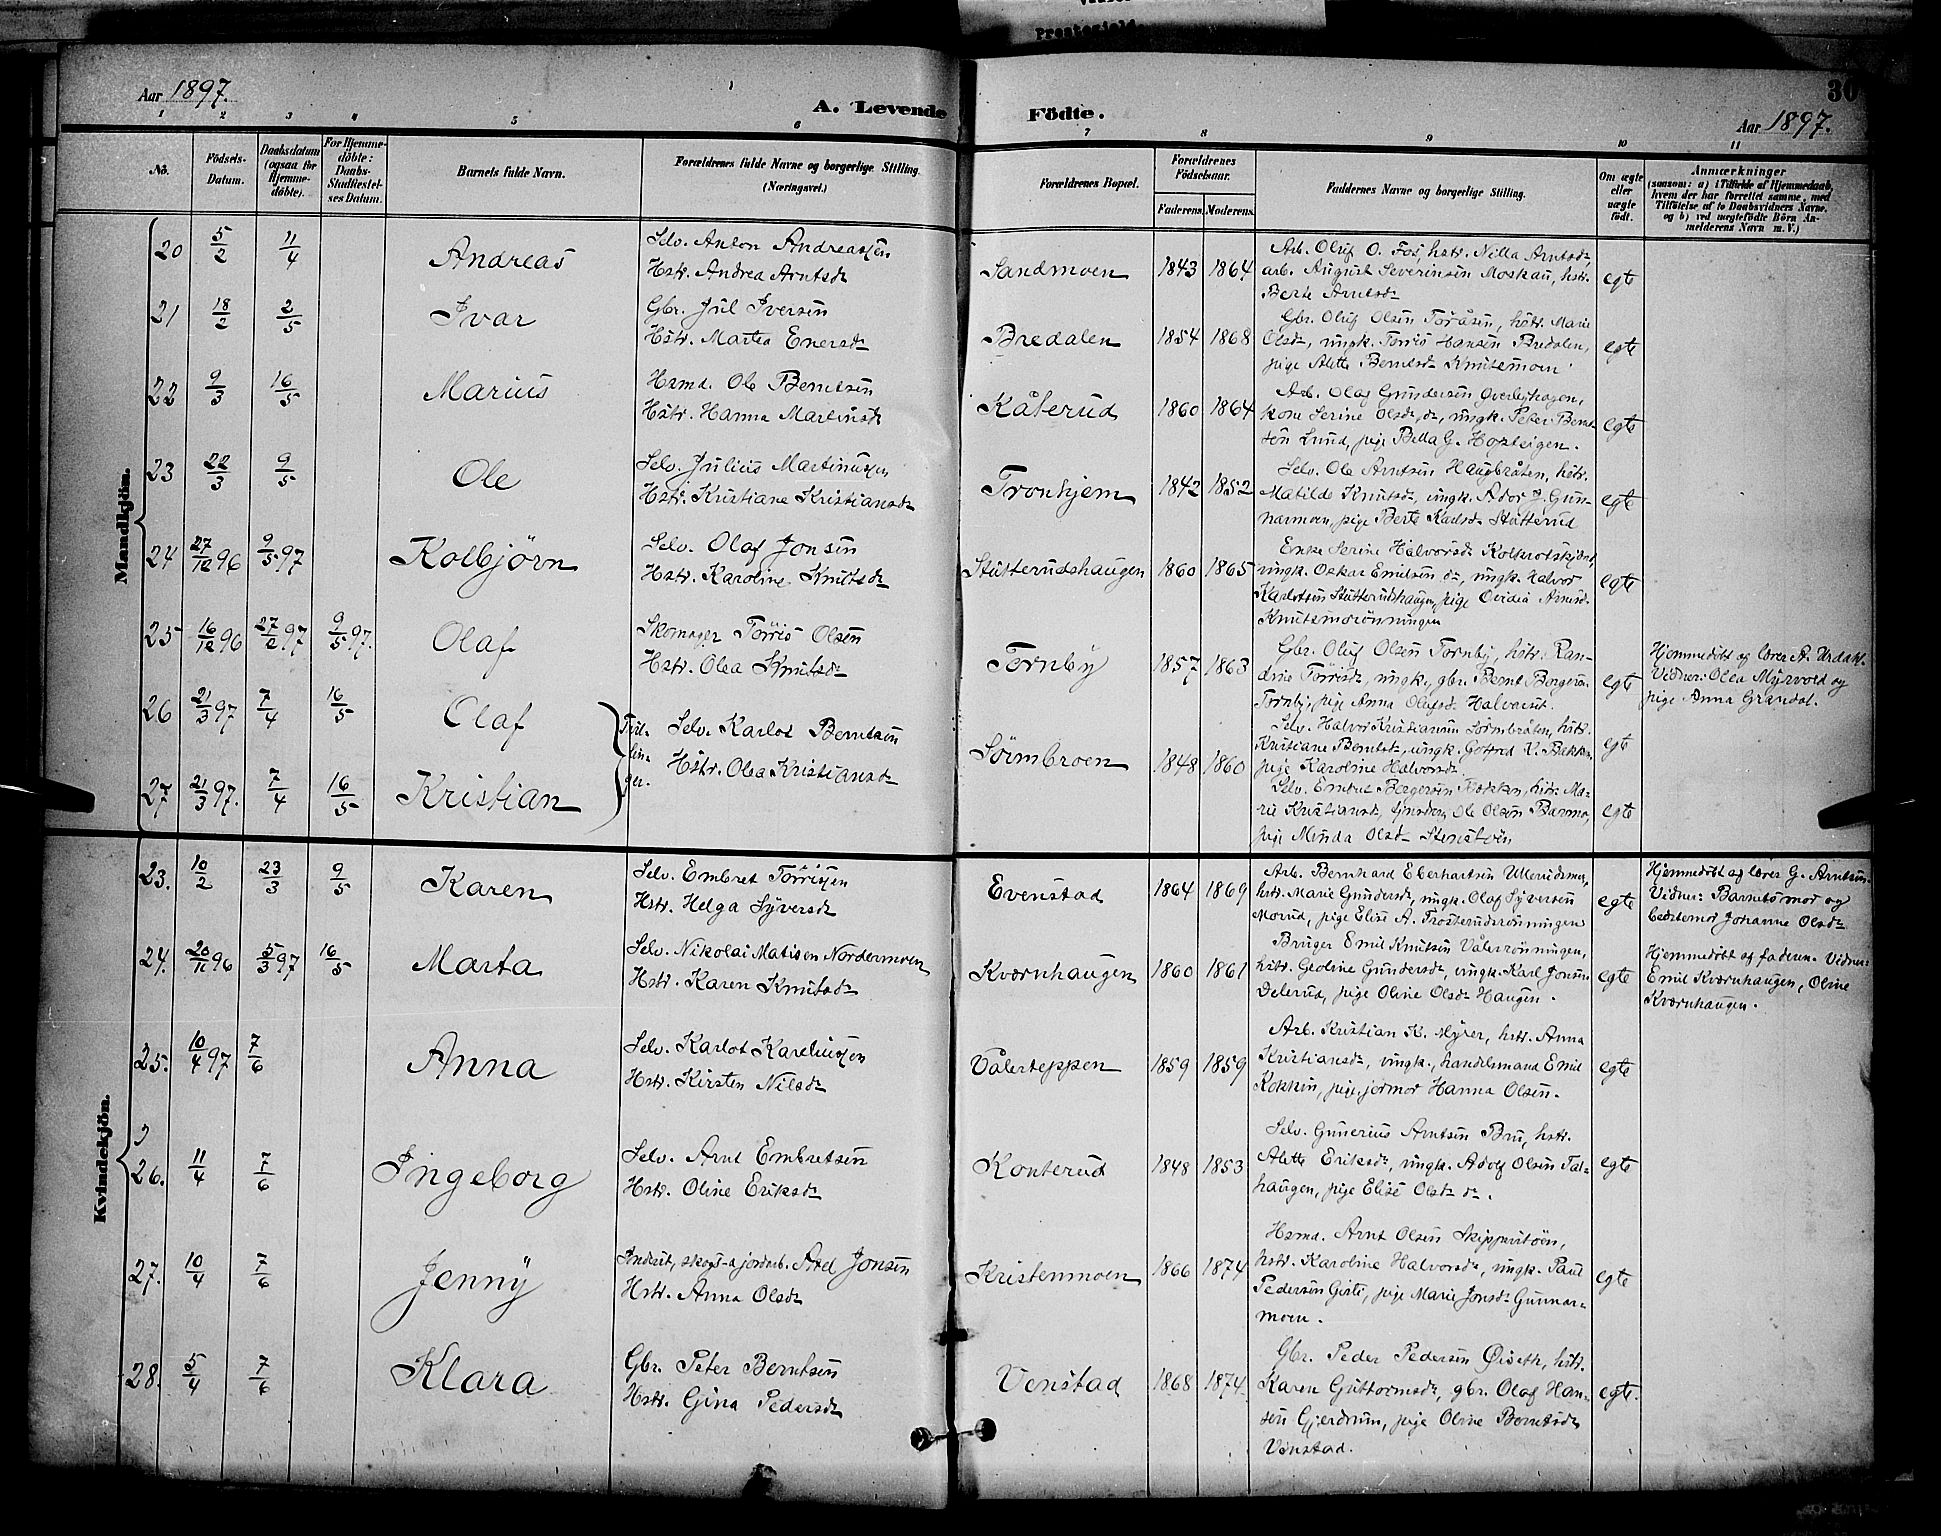 Aar 1897.
A. Levende Födte.
30
Aar 1897.
1 2 3 4 5 6 7 8 9 10 11
No.
Födsels-Datum.
Daabsdatum (ogsaa for Hjemme-döbte).
For Hjemme-döbte: Daabs-Stadfæstel-ses Datum.
Barnets fulde Navn.
Forældrenes fulde Navne og borgerlige Stilling.
(Næringsvei.)
Forældrenes Bopæl.
Forældrenes Födselsaar.
Faderens. Moderens.
Faddernes Navne og borgerlige Stilling.
Om ægte eller uægte födt.
Anmærkninger
(saasom: a) i Tilfælde af Hjemmedaab,
hvem der har forrettet samme, med
Tilföielse af to Daabsvidners Navne,
og b) ved uægtefödte Börn An-
melderens Navn m. V.)
Mandkjön.
20 5/2 11/4 Andreas
Selv. Anton Andreassen
Hstr. Andrea Arntsdr
Sandmoen 1843 1864
Arb. Oluf O. Fos, hstr. Nilla Arntsdr,
arb. August Severinsen Moskau, hstr.
Berte Arntsdr
egte
21 18/2 2/5 Ivar
Gbr. Jul Iversen
Hstr. Martea Enersdr
Bredalen 1854 1868
Gbr. Oluf Olsen Toråsen, hstr. Marie
Olsdr, ungk. Torris Hansen Bredalen,
pige Alette Berntsdr Knutsmoen
egte
22 9/3 16/5 Marius
Hsmd. Ole Berntsen
Hstr. Hanna Martinsdr
Kåterud 1860 1864
Arb. Olaf Gundersen Overbyhagen,
kone Serine Olsdr, dr, ungk. Peter Bernt-
sen Lund, pige Bella G.
egte
23 22/3 9/5 Ole
Selv. Julius Martinussen
Hstr. Kristiane Kristiansdr
Tronhjem 1842 1852
Selv. Ole Arntsen Haugbråten, hstr.
Matilde Knutsdr, ungk. Ador Gun-
narmoen, pige Berte Karlsdr Stutterud
egte
24 27/12 96 9/5 97 Kolbjörn
Selv. Olaf Jonsen
Hstr. Karoline Knutsdr
Stutterudshaugen 1860 1865
Enke Serine Halvorsdr
ungk. Oskar Emilsen dr, ungk. Halvor
Karlotsen Stutterudshaugen, pige Ovidia Arnesdr
Knutsmorönningen
egte
25 16/12 96 27/2 97 9/5 97. Olaf
Skomager Torris Olsen
Hstr. Olea Knutsdr
Tornby 1857 1863
Gbr. Oluf Olsen Tornby, hstr. Ran-
dine Torrisdr, ungk., gbr. Bernt Bergers.
Tornby, pige Anna Olufsdr Halvorset.
egte
Hjemmedöbt af lærer A. Urdahl.
Vidner: Olea Myrvold og
pige Anna Grandal.
26 21/3 97 7/4 16/5 Olaf
27. 21/3 97. 7/4 16/5 Kristian
Tvil-
lin-
ger.
Selv. Karlot Berntsen
Hstr. Olea Kristiansdr
Sörmbroen 1848 1860
Selv. Halvor Kristiansen Sörmbråten, hstr.
Kristiane Berntsdr, ungk. Gotfred K. Bakken
pige Karoline Halvorsdr
egte
Selv. Embret Bergersen Bakken, hstr. Ma-
rie Kristiansdr, Ole Olsen Barmo,
pige Minda Olsdr Stenstöen
egte
Kvindekjön.
23. 10/2 23/3 9/5 Karen
Selv. Embret Törrissen
Hstr. Helga Syversdr
Evenstad 1864 1869
Arb. Bernhard Eberhartsen Ullerudsmoen,
hstr. Marie Gundersdr, ungk. Olaf Syversen
Morud, pige Elise A. Trosterudsrönningen
egte
Hjemmedöbt af lærer G. Arntsen.
Vidner: Barnets mor og
bedstemor Johanne Olsdr
24. 20/11 96 5/3 97 16/5 Marta
Selv. Nikolai Matisen Nordermoen
Hstr. Karen Knutsdr
Kværnhaugen 1860 1861
Bruger Emil Knutsen Vålerrönningen,
hstr. Geoline Gundersdr, ungk. Karl Jonsen
Delerud, pige Oline Olsdr Haugen.
egte
Hjemmedöbt af faderen. Vidner:
Emil Kværnhaugen, Oline
Kværnhaugen.
25. 10/4 97 7/6 Anna
Selv. Karlot Kareliussen
Hstr. Kirsten Nilsdr
Vålerteppen 1859 1859
Arb. Kristian K. Myrer, hstr. Anna
Kristiansdr, ungk., handelsmand Emil
Kokkin, pige, jormor Hanna Olsen.
egte
26. 11/4 7/6 Ingeborg
Selv. Arnt Embretsen
Hstr. Oline Eriksdr
Konterud 1848 1853
Selv. Gunerius Arntsen Bru, hstr.
Alette Eriksdr, ungk. Adolf Olsen Tal-
haugen, pige Elise Olsdr dr.
egte
27. 10/4 7/6 Jenny
Inderst, skogs- og jordarb. Axel Jonsen
Hstr. Anna Olsdr
Kristenmoen 1866 1874
Hsmd. Arnt Olsen Skipperstöen,
hstr. Karoline Halvorsdr, ungk. Paul
Pedersen Gisti, pige Marie Jonsdr Gunnar-
moen.
egte
28. 5/4 7/6 Klara
Gbr. Peter Berntsen
Hstr. Gina Pedersdr
Venstad 1868 1874.
Gbr. Peder Pedersen Öiseth, hstr.
Karen Guttormsdr, gbr. Olaf Han-
sen Gjerdrum, pige Oline Berntsdr
Venstad.
egte.